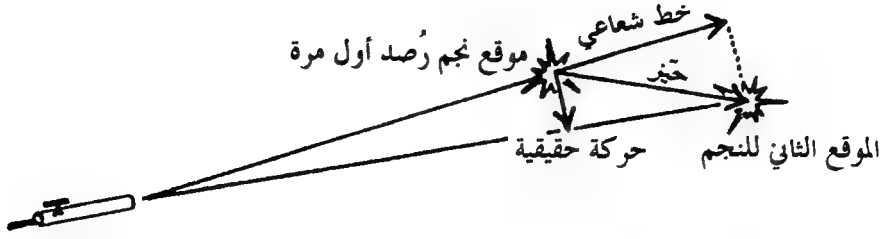 خط شعاعي
موقع نجم رُصد أول مرة
حركة حقيقية
الموقع الثاني للنجم